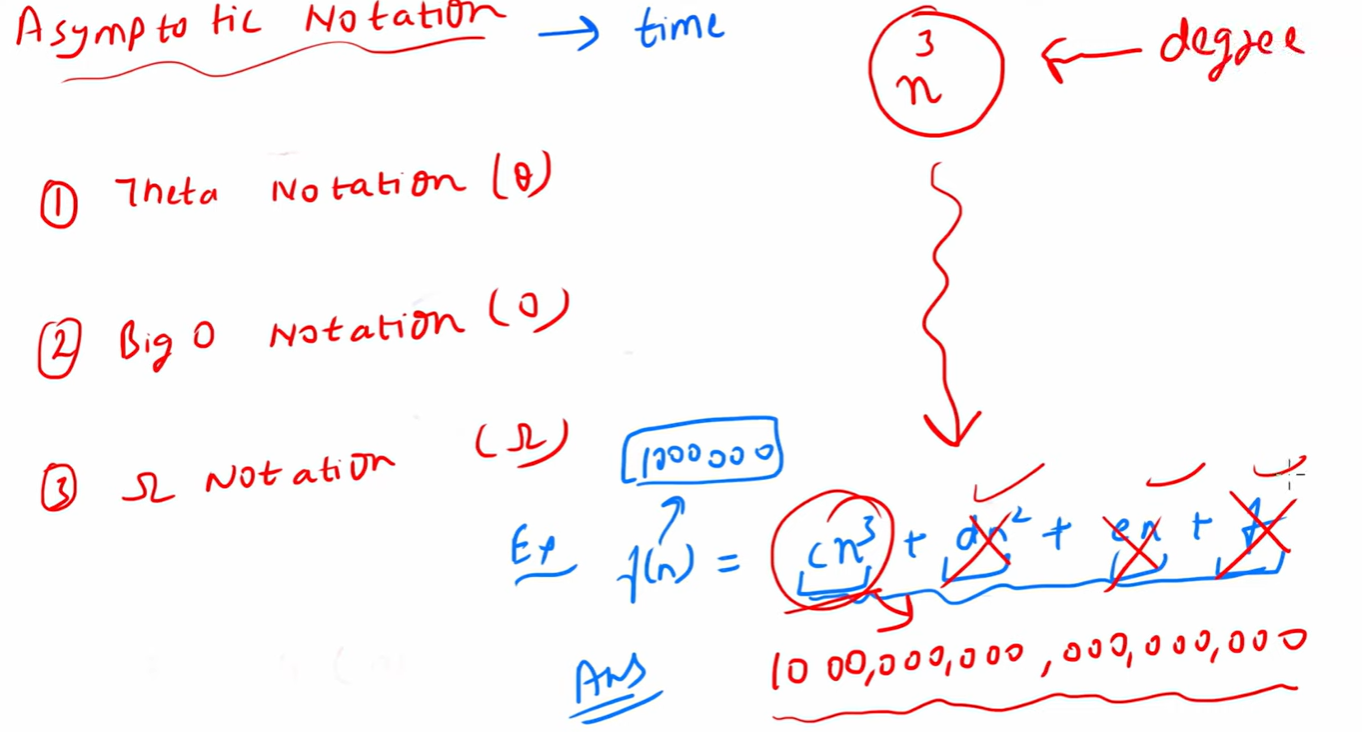 Asymptotic Notation → time
n³ ← degree
① Theta Notation (θ)
② Big O Notation (O)
③ Ω Notation (Ω)
1000000
Ex f(n) = cn³ + dn² + en + f
Ans 1000,000,000,000,000,000